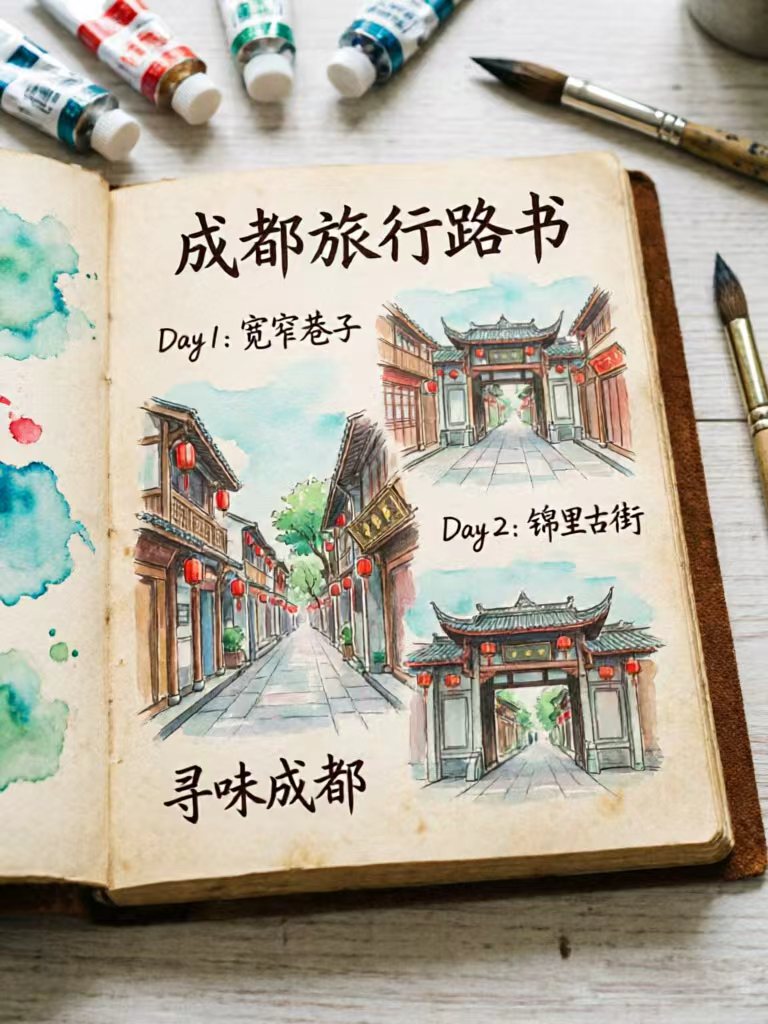 成都旅行路书
Day1: 宽窄巷子
Day2: 锦里古街
寻味成都